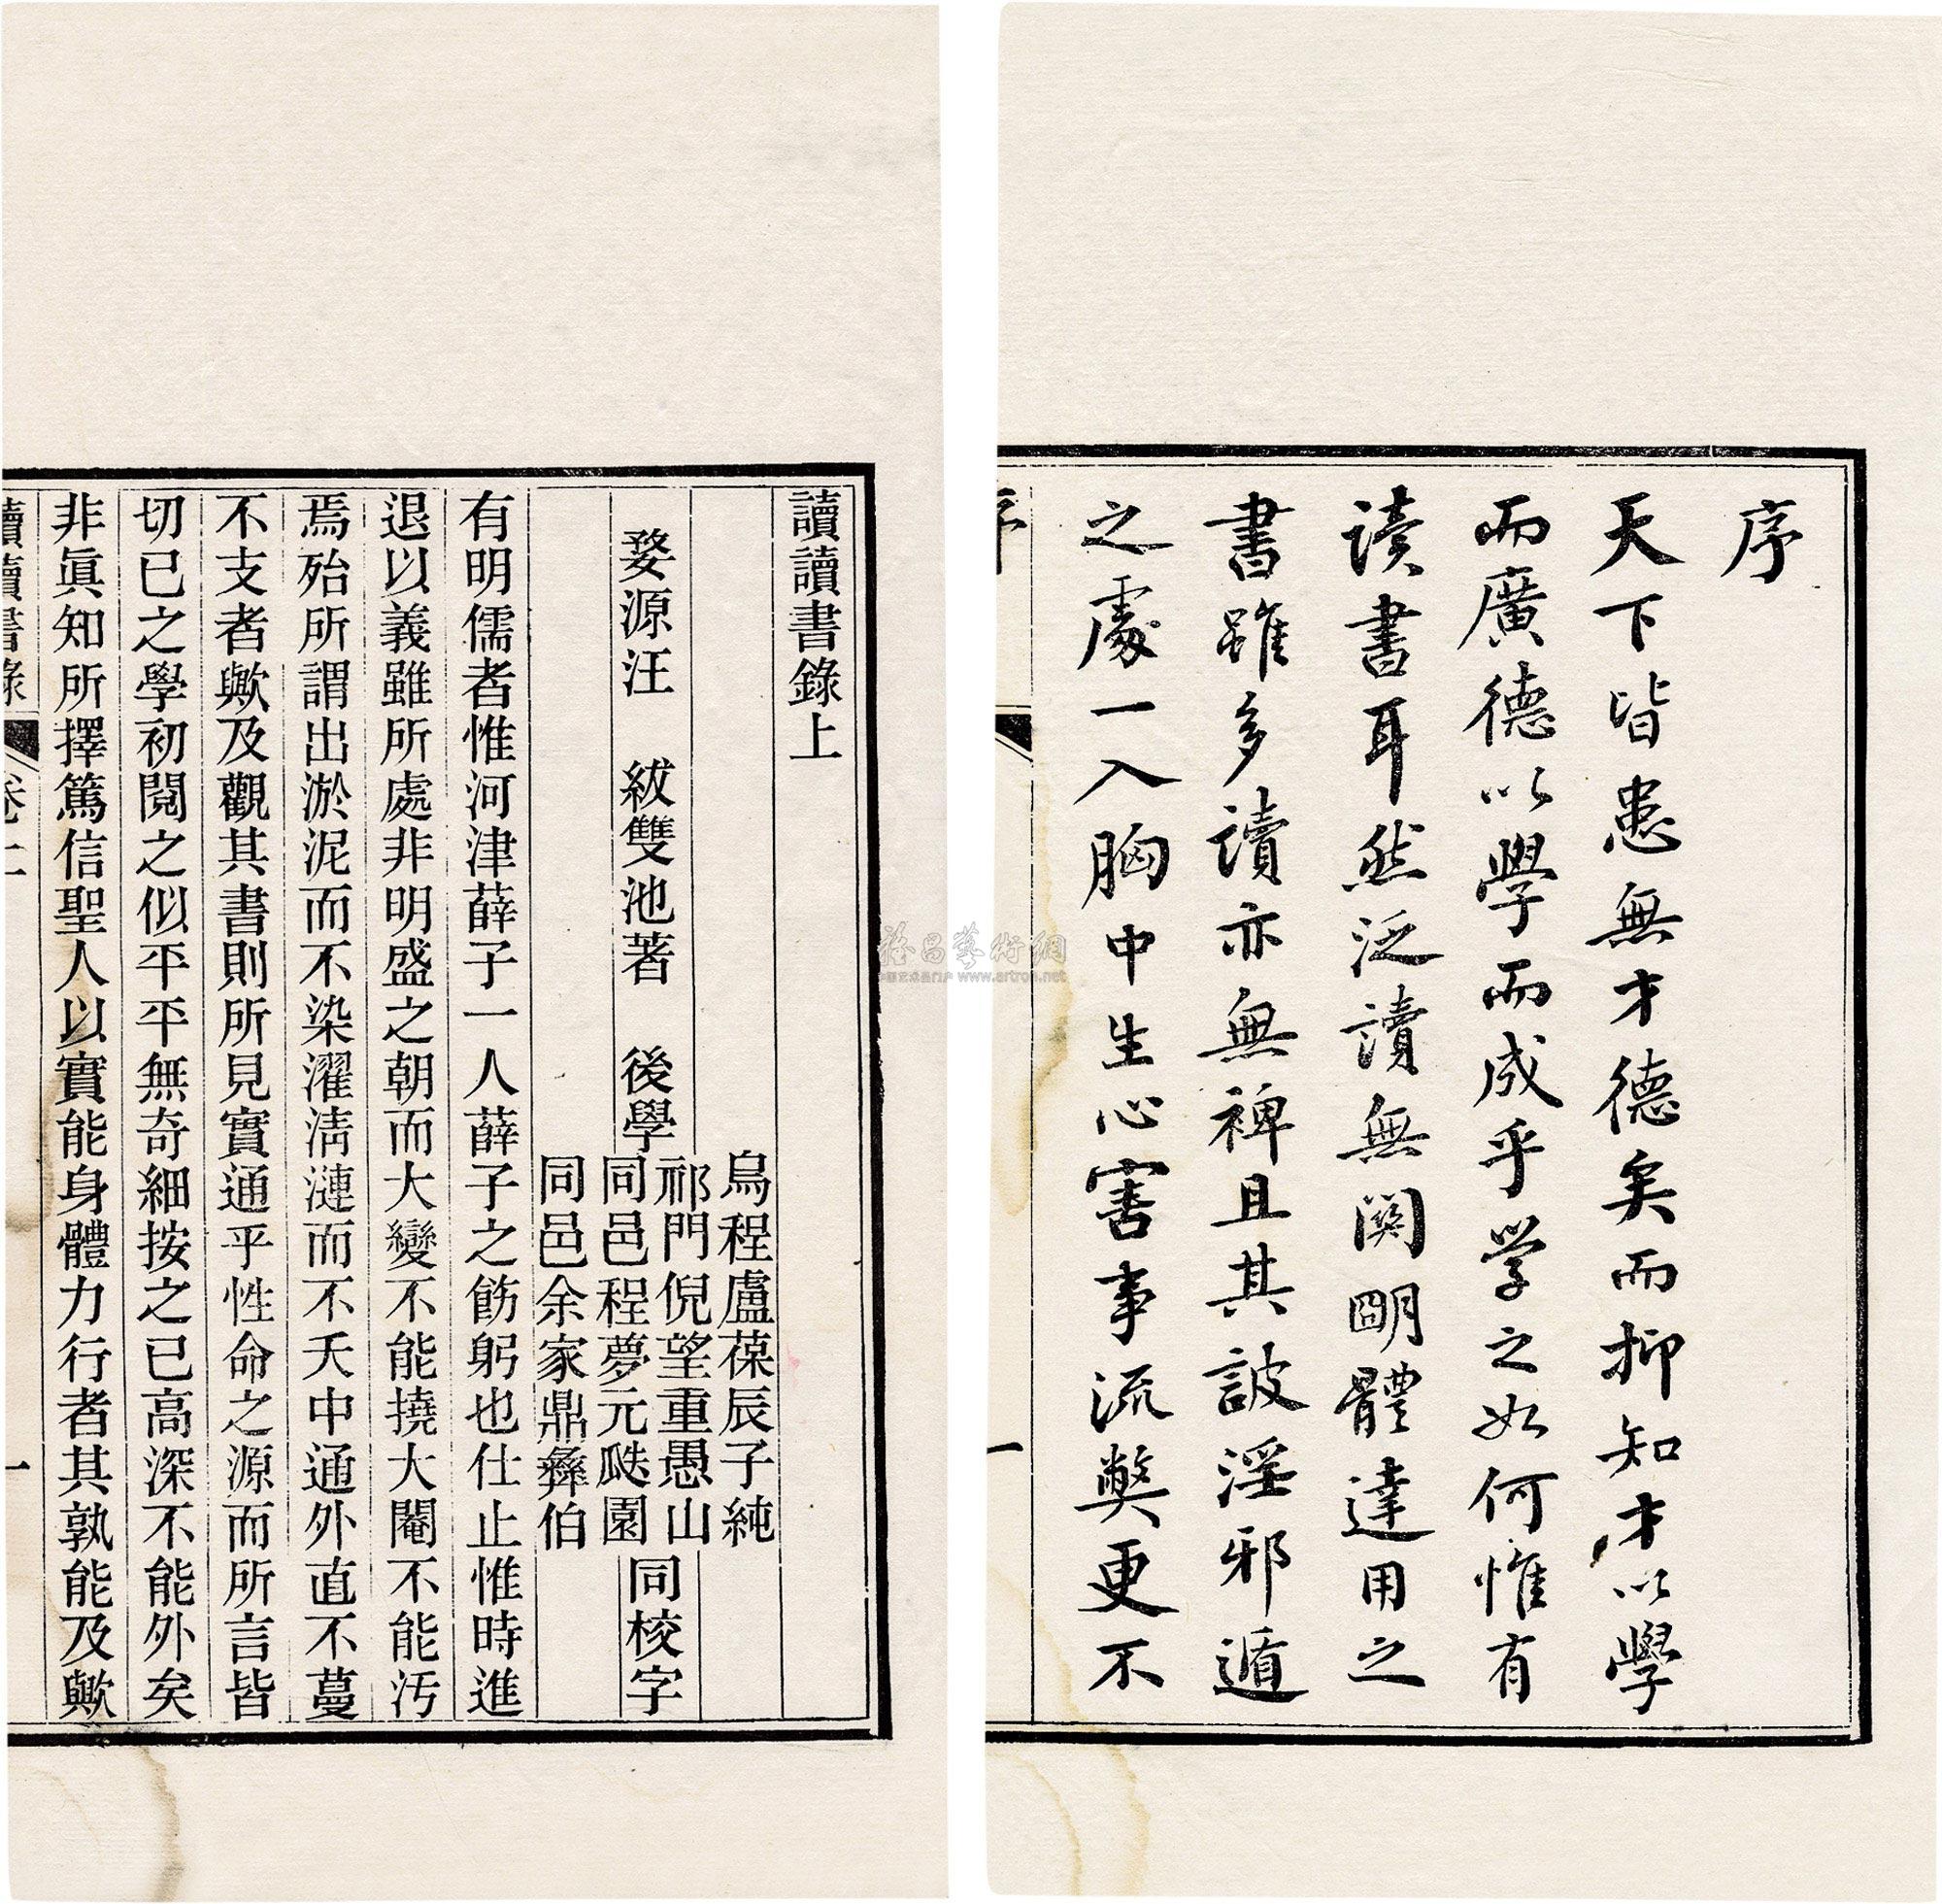 序
天下皆患無才德矣而抑知才以學
而廣德以學而成乎学之如何惟有
读書耳然泛讀無関明體達用之
書雖多讀亦無裨且其詖淫邪遁
之處一入胸中生心害事流弊更不
序
一
讀讀書錄上
婺源汪 紱雙池著 後學
烏程盧葆辰子純
祁門倪望重愚山
同邑程夢元瓞園
同邑余家鼎彝伯
同校字
有明儒者惟河津薛子一人薛子之飭躬也仕止惟時進
退以義雖所處非明盛之朝而大變不能撓大閹不能汚
焉殆所謂出淤泥而不染濯淸漣而不夭中通外直不蔓
不支者歟及觀其書則所見實通乎性命之源而所言皆
切已之學初閱之似平平無奇細按之已高深不能外矣
非眞知所擇篤信聖人以實能身體力行者其孰能及歟
讀讀書錄
卷上
一
雅昌藝術網
中国艺术品门户 www.artron.net